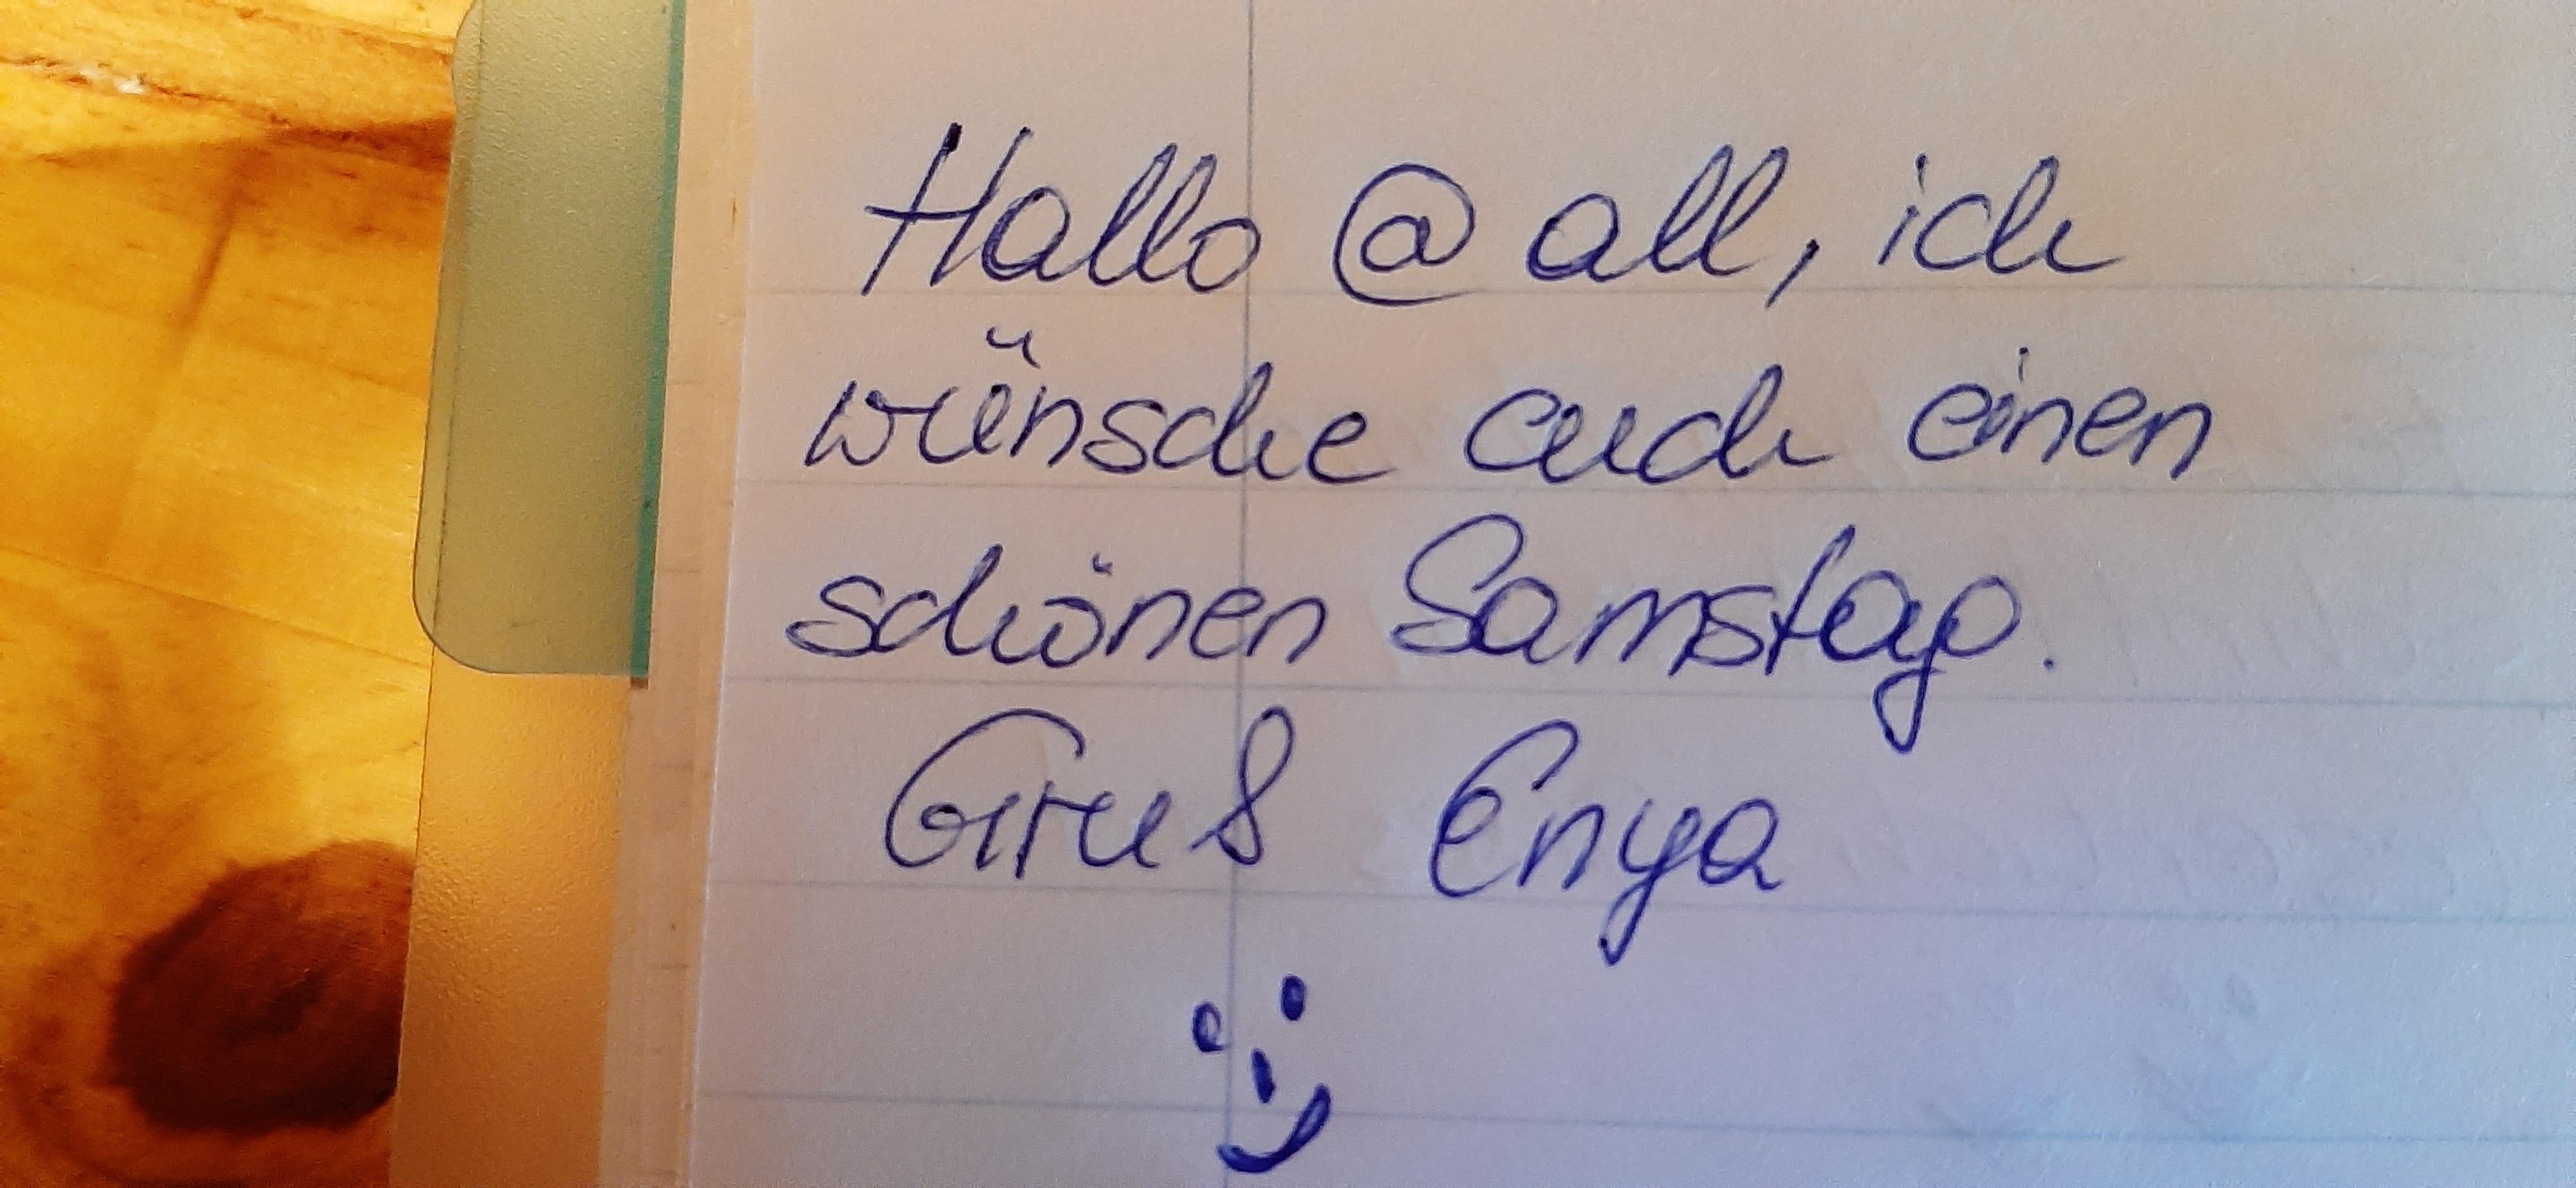 Hallo @ all, ich
wünsche euch einen
schönen Samstag.
Gruß Enya